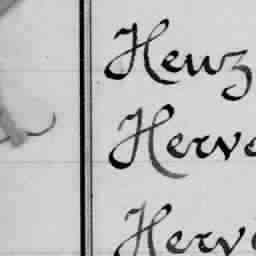 Heuz
Herve
Herv